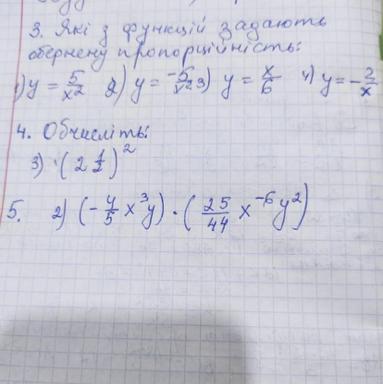 3. Які з функцій задають
обернену пропорційність:
1) y = 5/x² 2) y = -5/x² 3) y = x/6 4) y = -2/x
4. Обчисліть:
3) (2 1/2)²
5. 2) (-4/5 x³y) · (25/44 x⁻⁶y²)